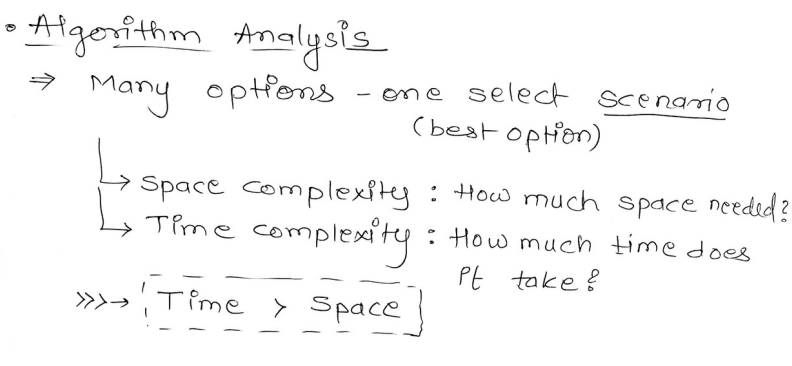 • Algorithm Analysis
⇒ Many options - one select scenario
(best option)
↳ Space complexity : How much space needed?
↳ Time complexity : How much time does
it take?
>>>→ Time > Space